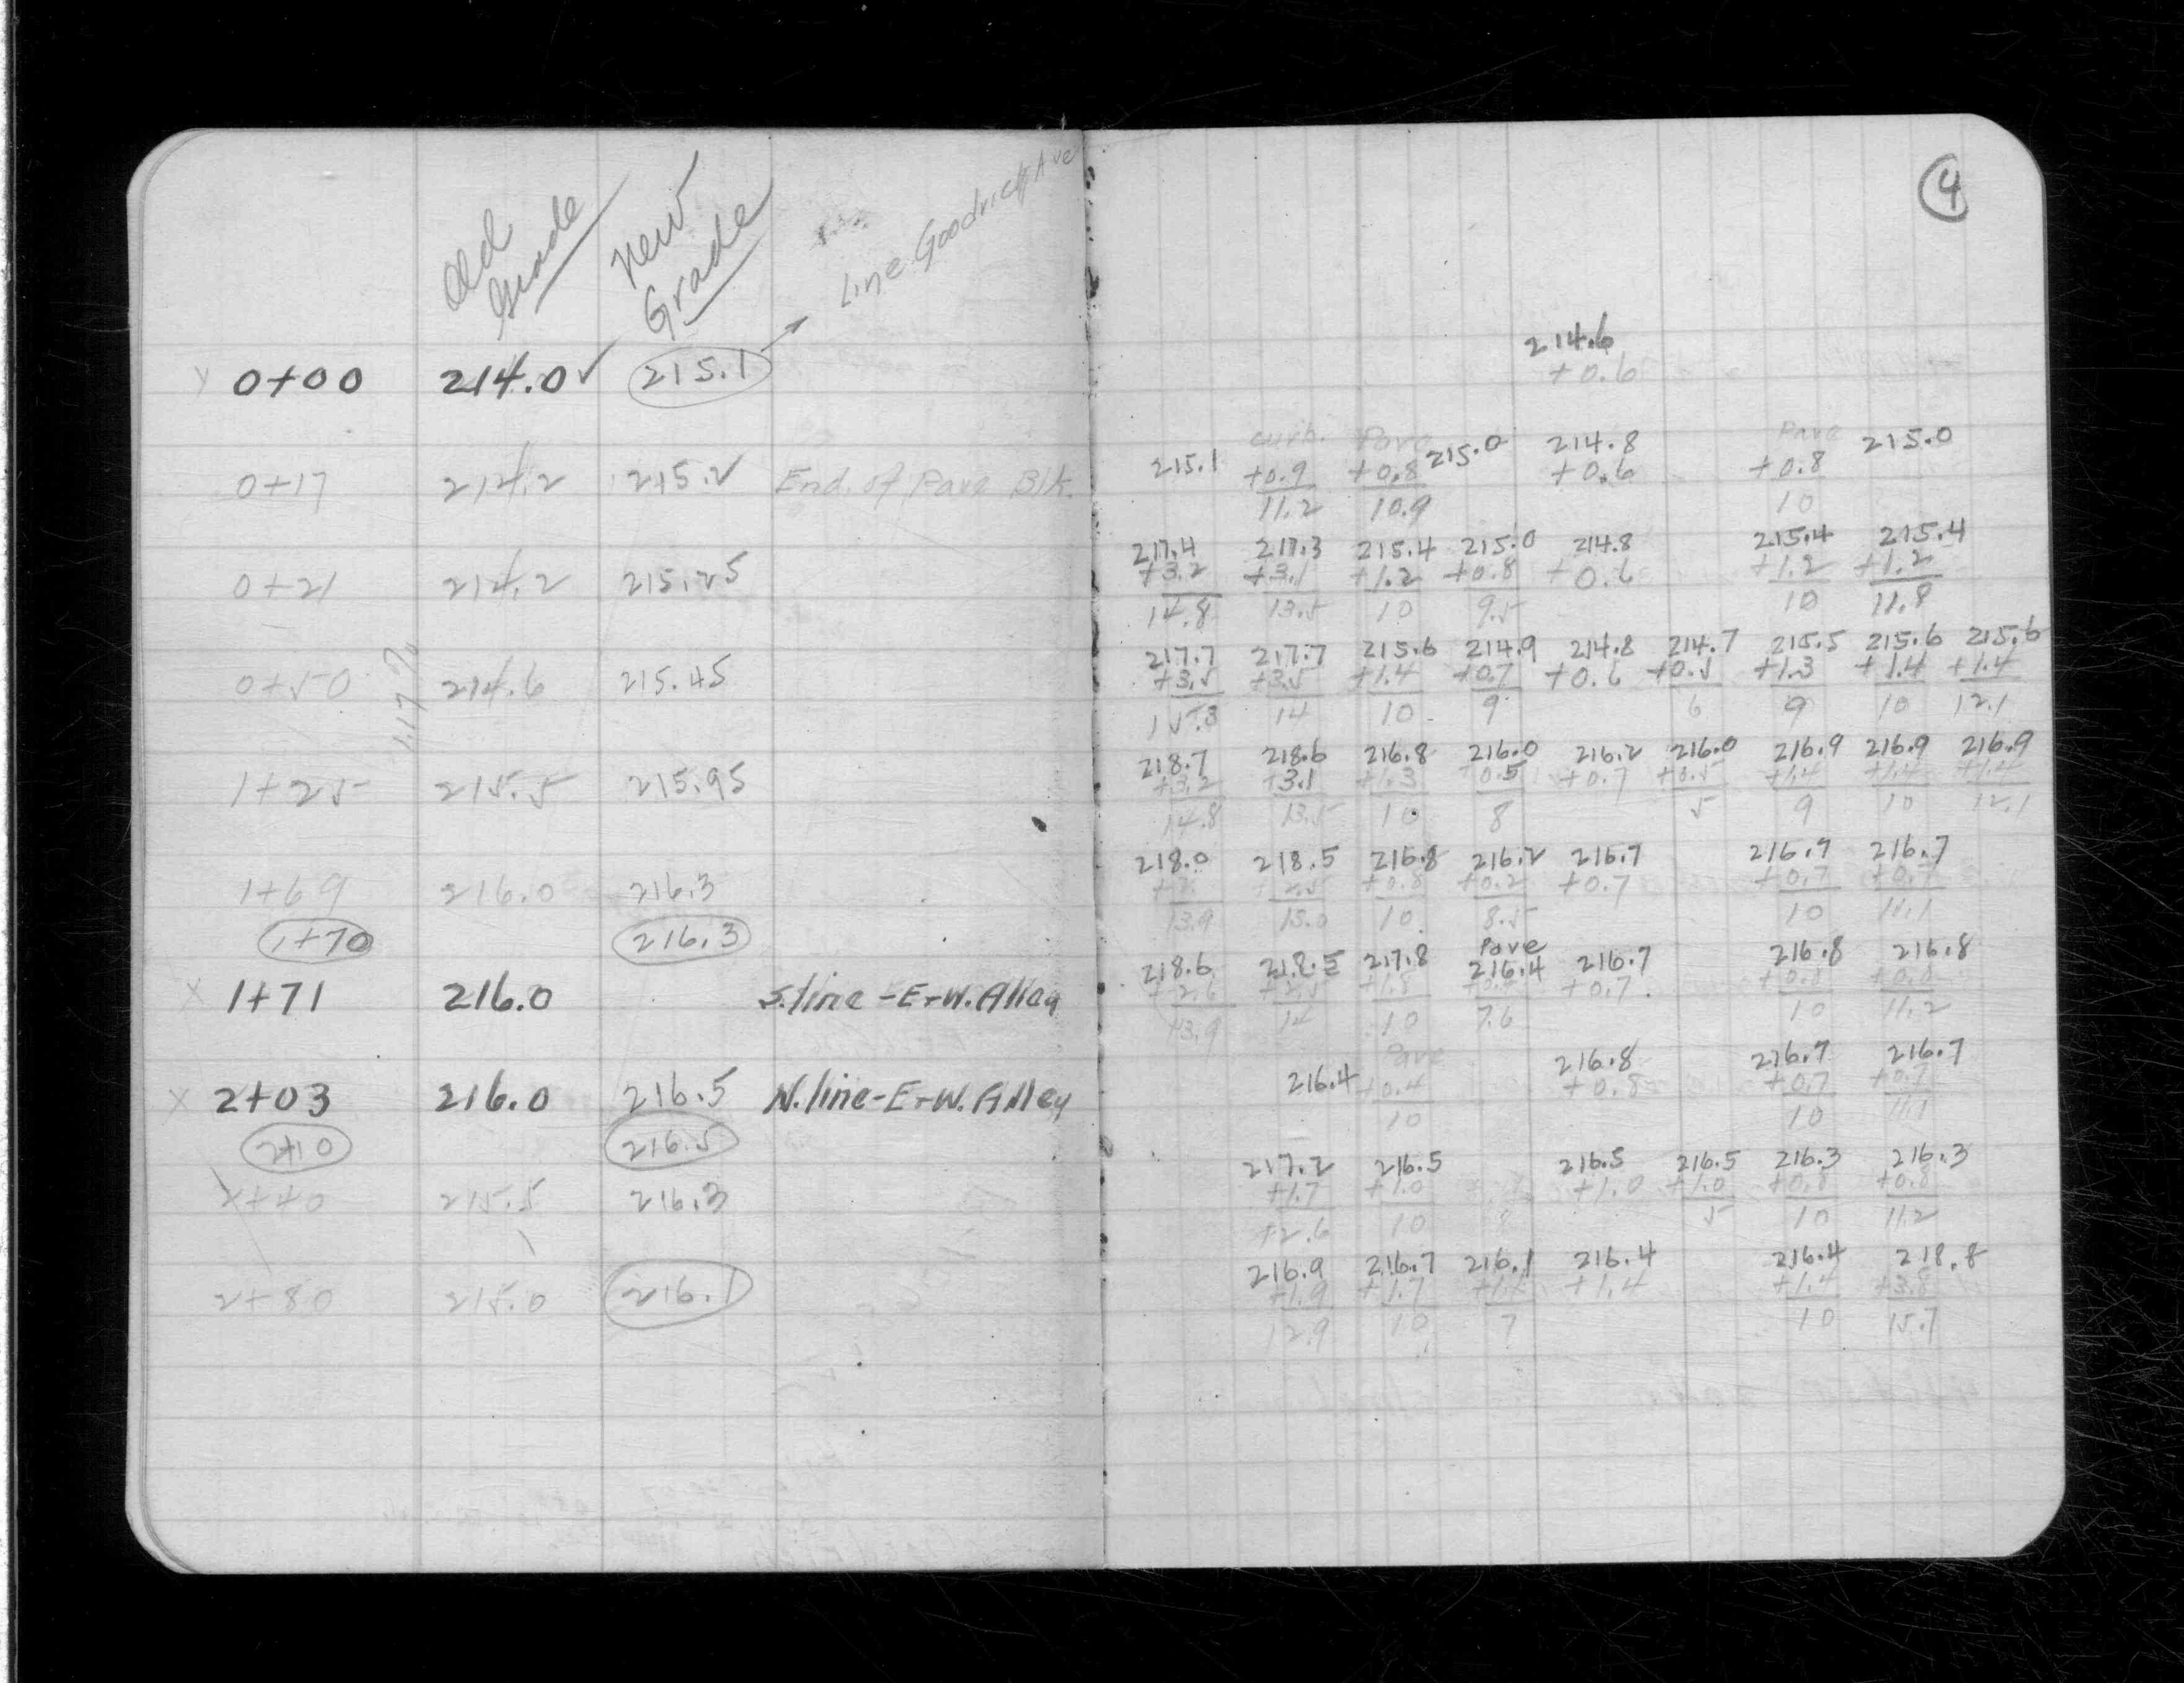 Old Grade New Grade Line Goodrich Ave
0+00 214.0✓ 215.1
0+17 214.2 215.2 End. of Pave Blk.
0+21 214.2 215.25
1.17%
0+50 214.6 215.45
1+25 215.5 215.95
1+69 216.0 216.3
1+70 216.3
X 1+71 216.0 S.line-E-W.Alley
X 2+03 216.0 216.5 N.line-E-W.Alley
2+10 216.5
2+40 215.5 216.3
2+80 215.0 216.1
4
214.6
+0.6
curb. Pave Pave
215.1 215.0 214.8 215.0
+0.9 +0.8 +0.6 +0.8
11.2 10.9 10
217.4 217.3 215.4 215.0 214.8 215.4 215.4
+3.2 +3.1 +1.2 +0.8 +0.6 +1.2 +1.2
14.8 13.5 10 9.5 10 11.8
217.7 217.7 215.6 214.9 214.8 214.7 215.5 215.6 215.6
+3.5 +3.5 +1.4 +0.7 +0.6 +0.5 +1.3 +1.4 +1.4
15.3 14 10 9 6 9 10 12.1
218.7 218.6 216.8 216.0 216.2 216.0 216.9 216.9 216.9
+3.2 +3.1 +1.3 0.5 +0.7 +0.5 +1.4 +1.4 +1.4
14.8 13.5 10 8 5 9 10 12.1
218.0 218.5 216.8 216.2 216.7 216.7
+2.5 +0.8 +0.2 +0.7 +0.7 +0.7
13.9 13.0 10 8.5 10 11.1
Pave
218.6 218.5 217.8 216.4 216.7 216.8 216.8
+2.6 +2.5 +1.8 +0.4 +0.7 +0.8 +0.8
13.9 14 10 7.6 10 11.2
Pave
216.4 216.8 216.7 216.7
+0.4 +0.8 +0.7 +0.7
10 10 11.1
217.2 216.5 216.5 216.5 216.3 216.3
+1.7 +1.0 +1.0 +1.0 +0.8 +0.8
12.6 10 8 5 10 11.2
216.9 216.7 216.1 216.4 216.4 218.8
+1.9 +1.7 +1.1 +1.4 +1.4 +3.8
12.9 10 7 10 15.7